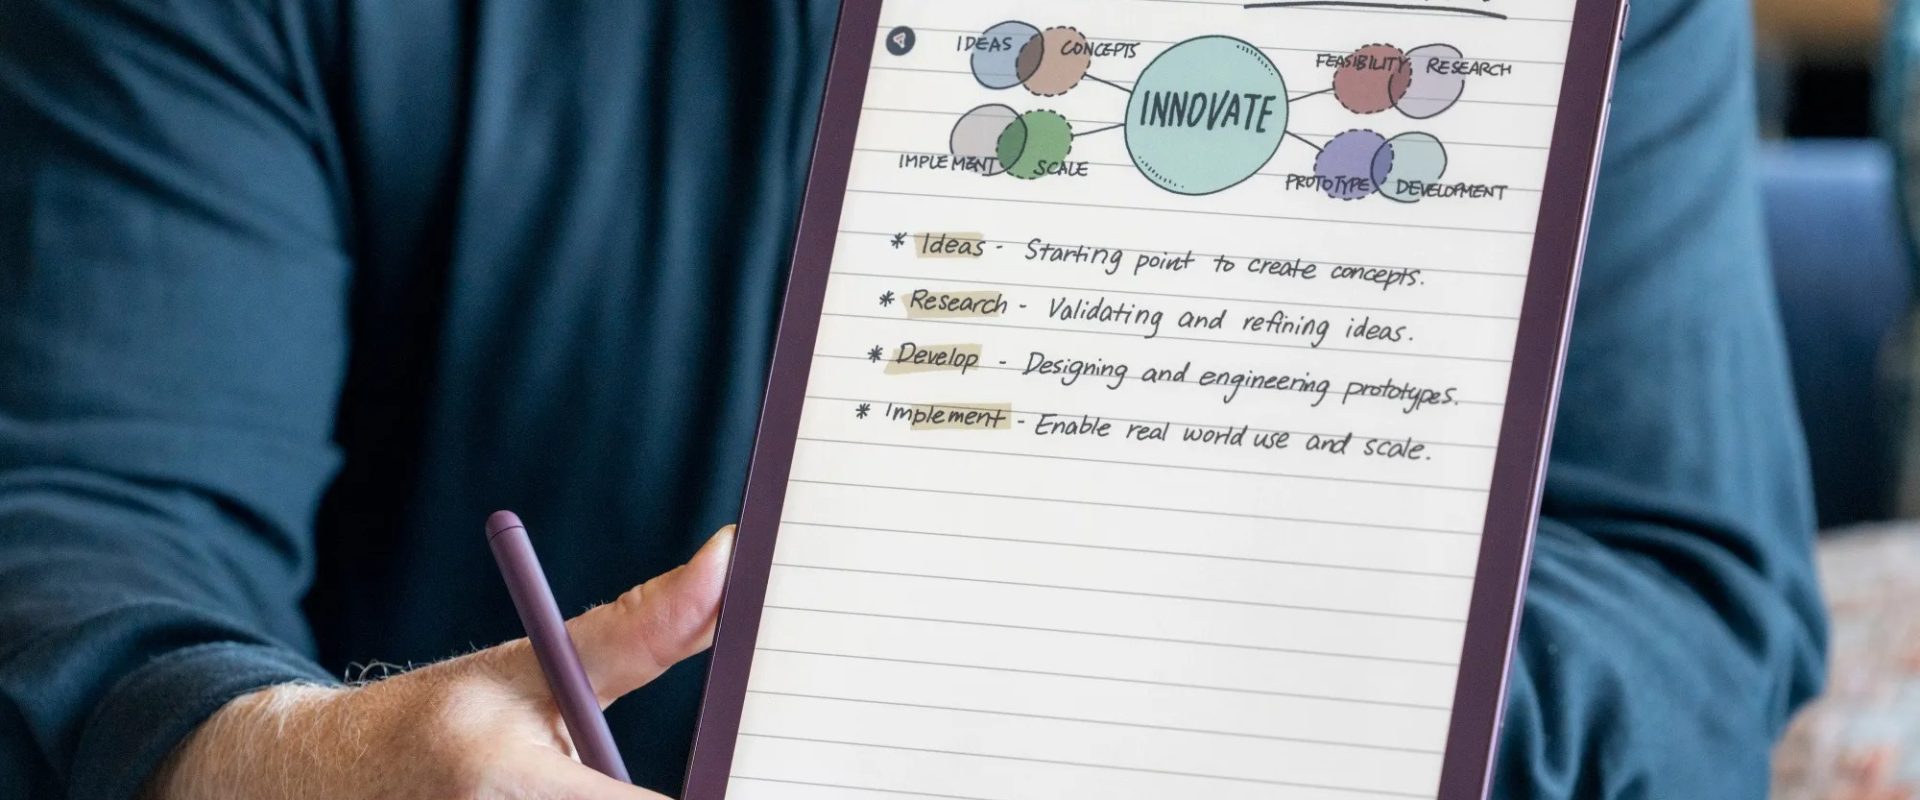 IDEAS CONCEPTS
FEASIBILITY RESEARCH
INNOVATE
IMPLEMENT SCALE
PROTOTYPE DEVELOPMENT
* Ideas - Starting point to create concepts.
* Research - Validating and refining ideas.
* Develop - Designing and engineering prototypes.
* Implement - Enable real world use and scale.